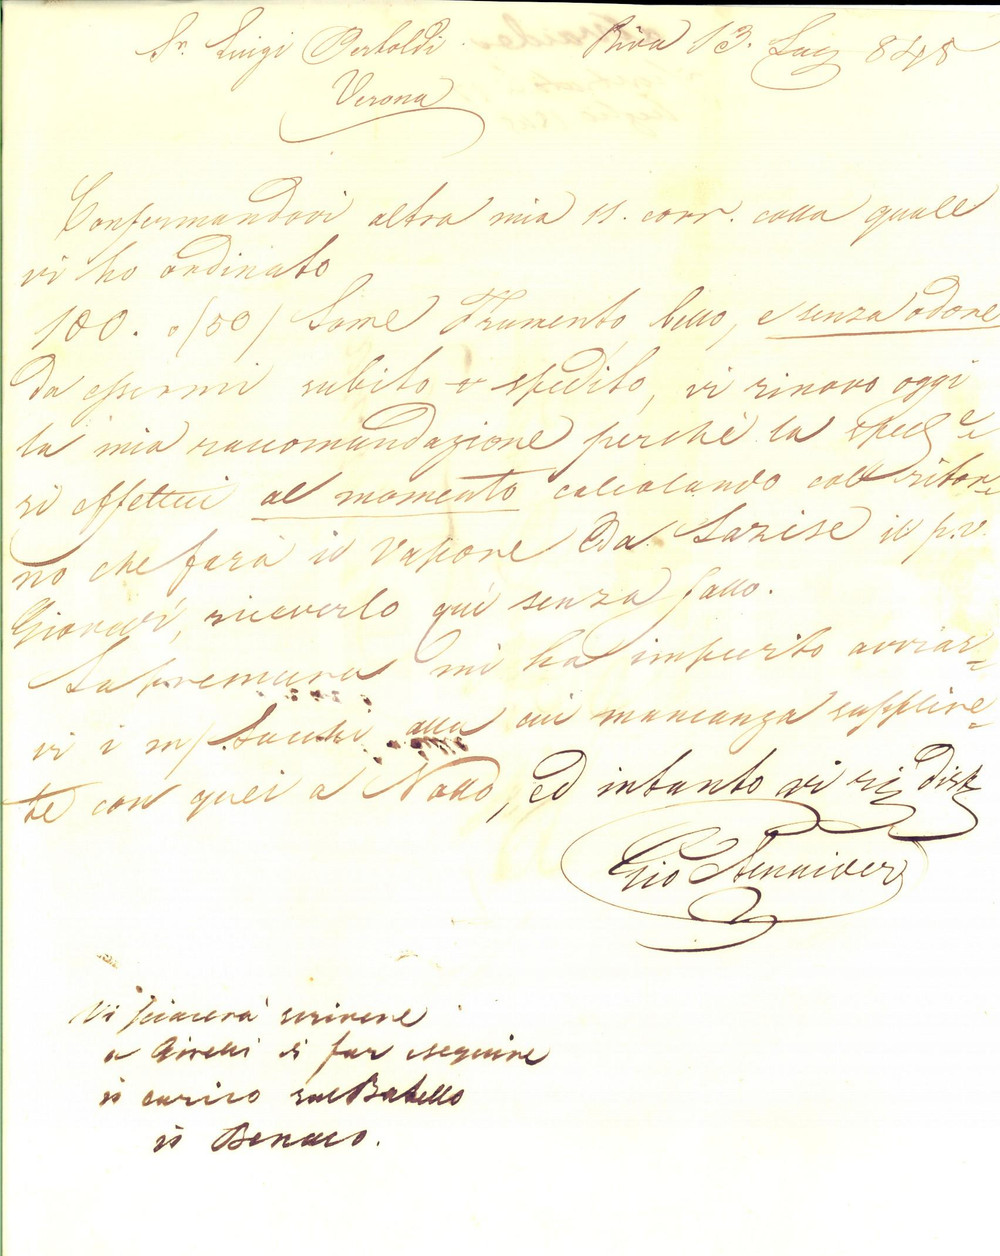 Sr. Luigi Bertoldi Riva 13. Lug 845
Verona
Confermandovi altra mia 11. corr. colla quale
vi ho ordinato
100. o/50/ Some Frumento bello, e senza odore
da essermi subito spedito, vi rinovo oggi
la mia raccomandazione perché la sped.e
si effettui al momento calcolando coll ritor=
no che fará il Vapore da Lazise il p.v.
Giovedì, riceverlo quí senza fallo.
La premura mi ha impedito avviar=
vi i m/ Sacchi alla cui mancanza supplire=
te con quei a Nollo, ed intanto vi riv disz
Gio
Vi piacerá scrivere
a di far eseguire
il carico sul Batello
il Benaco.